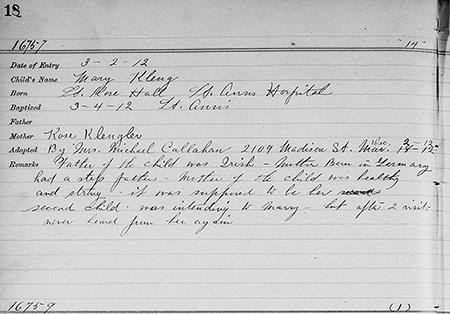 18
16757 "14"
Date of Entry 3-2-12
Child's Name Mary Kleng
Born St. Rose Hall St. Anns Hospital
Baptized 3-4-12 St. Ann's
Father
Mother Rose Klengler
Adopted By Mrs. Michael Callahan 2109 Madison St.
Remarks Father of the child was Irish - Mother Born in Germany
had a step father - Mother of the child was healthy
and strong - it was supposed to be her
second child - was intending to marry - but after 2 visits
never heard from her again
16759 (1)